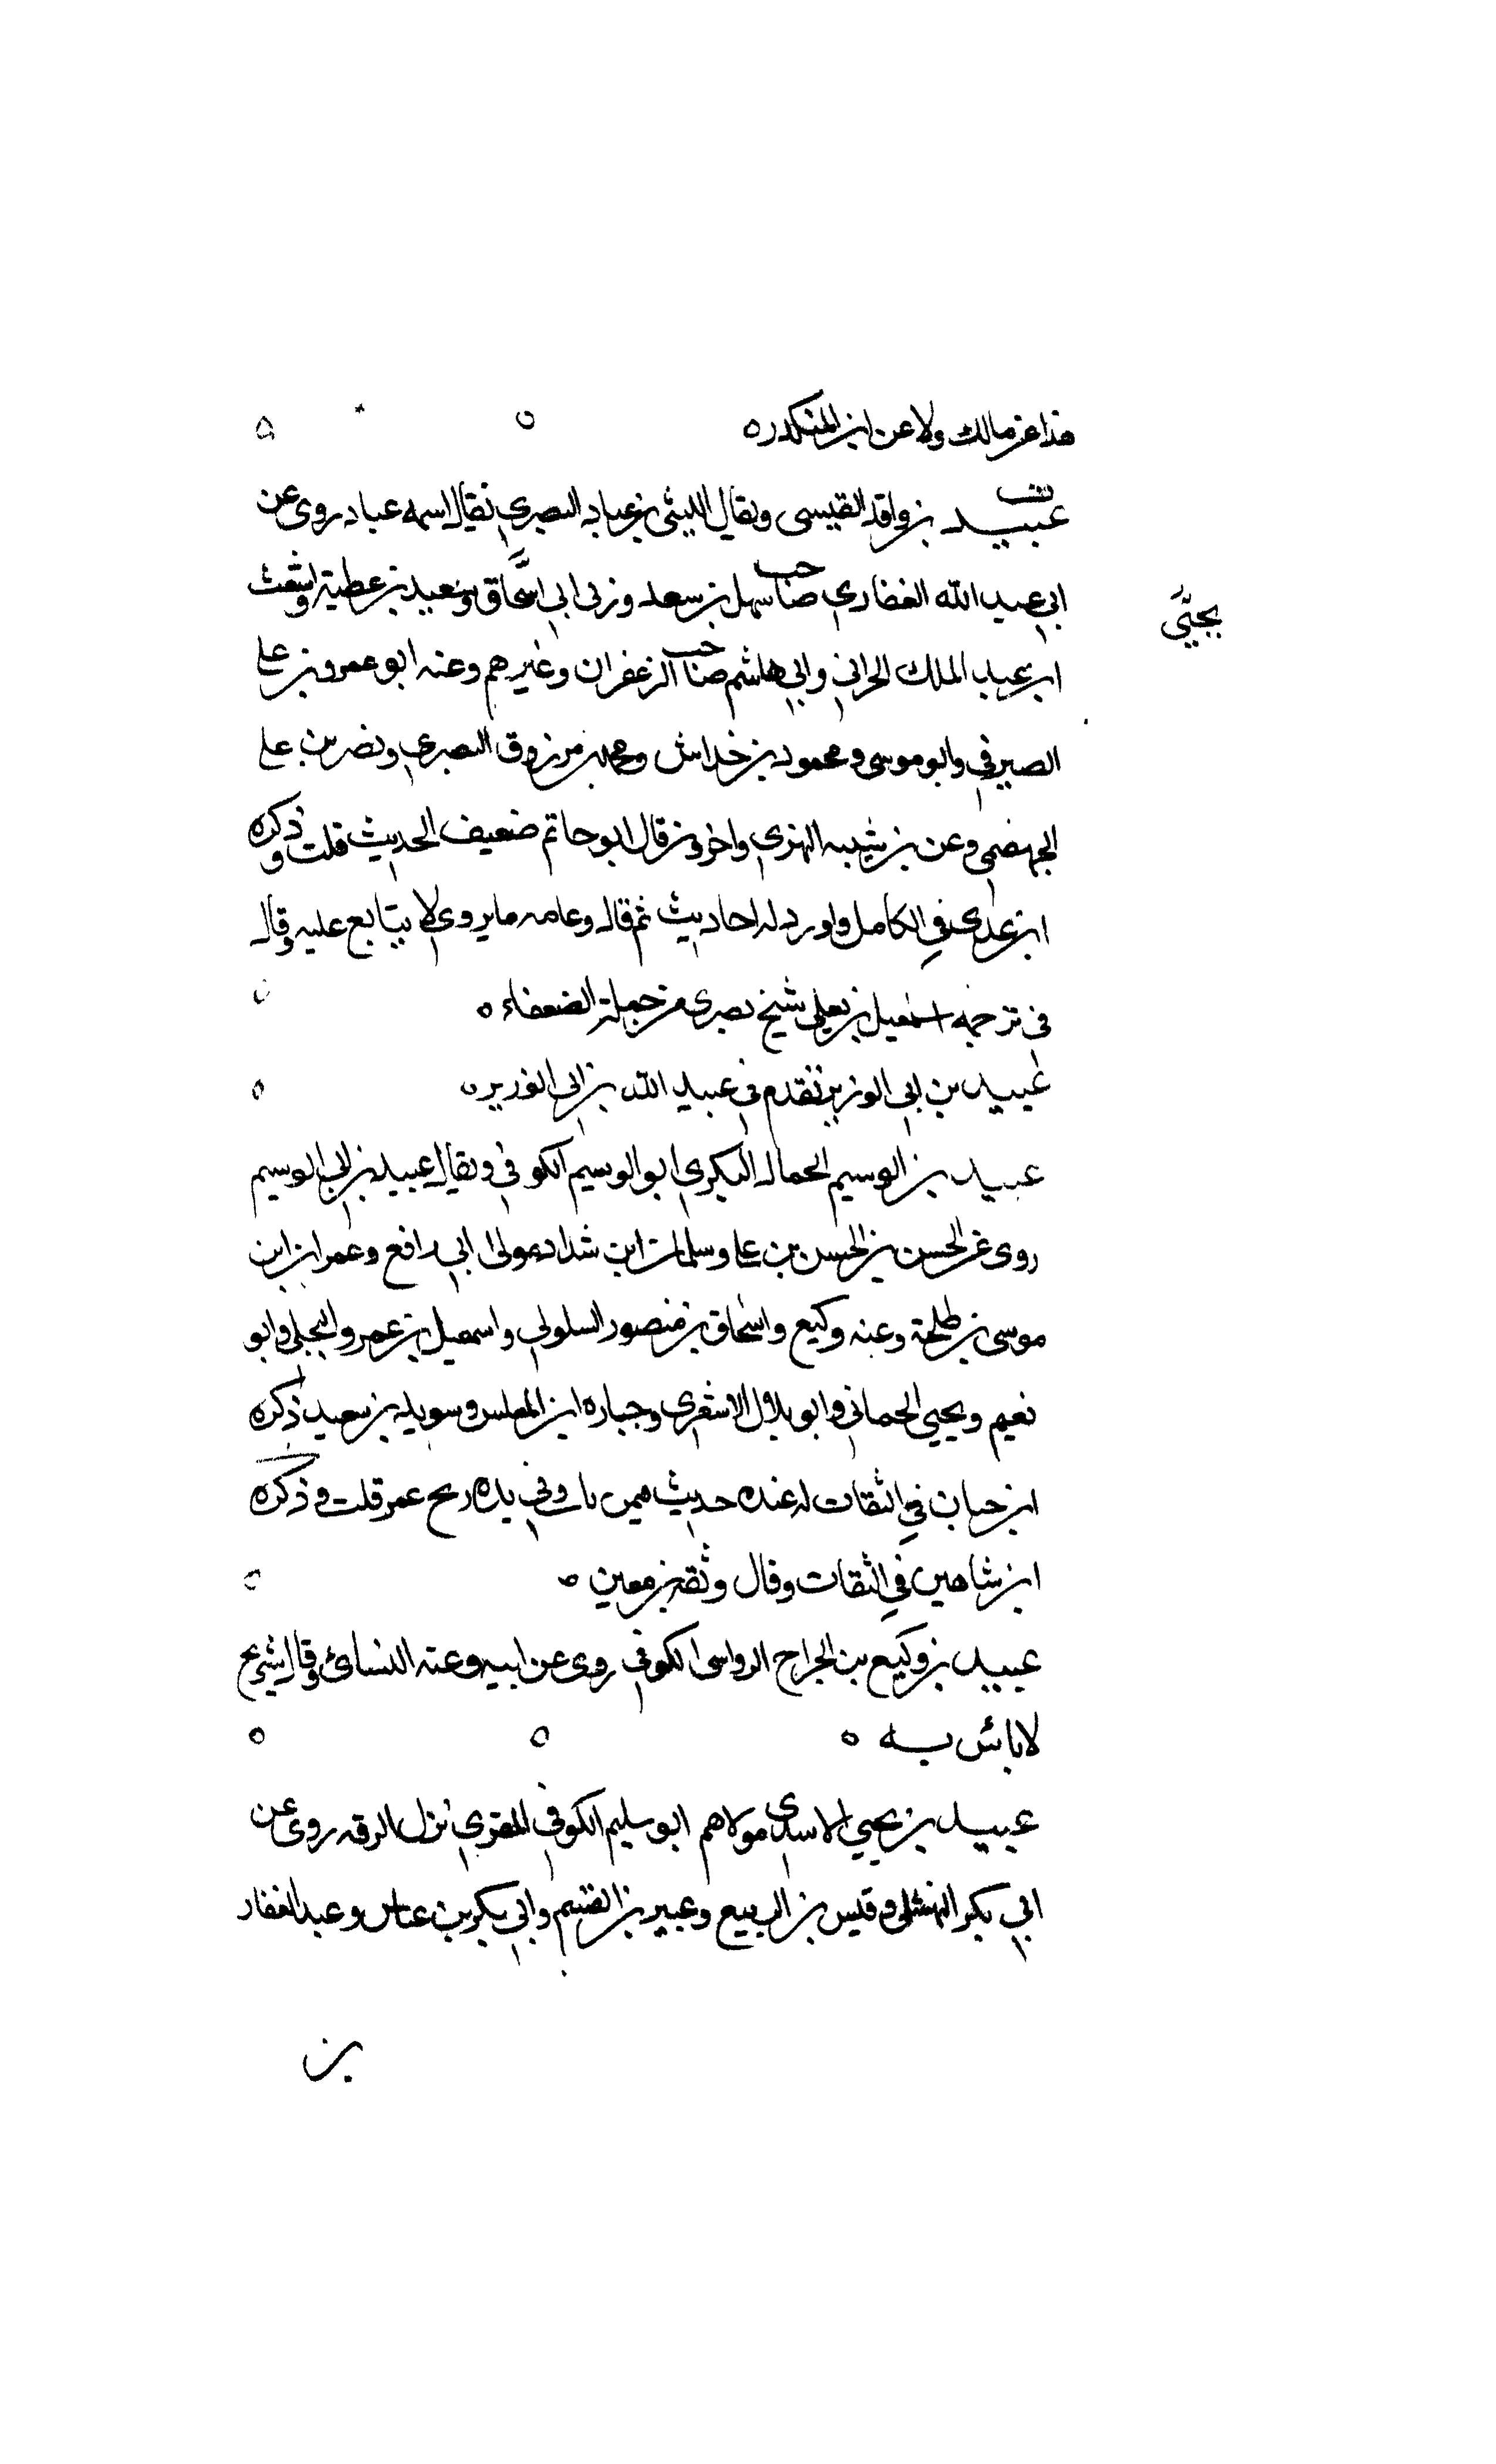 هذا عن مالك ولا عن ابن المنكدر
عبيد بن واقد القيسي ويقال الليثي بن عباد البصري يقال اسمه عباد روى عن
ابي عبد الله الغفاري صاحب سهل بن سعد وزربي ابي اسحاق وسعيد بن عطية واشعث
يحيى
ابن عبد الملك الحراني وابي هاشم صاحب الزعفران وغيرهم وعنه ابو عمرو بن علي
الصيرفي وابو موسى ومحمود بن خداش ومحمد بن مرزوق البصري ونصر بن علي
الجهضمي وعن بن شيبه النهري واخرون قال ابو حاتم ضعيف الحديث قلت وذكره
ابن عدي في الكامل واورد له احاديث ثم قال وعامه ما يروي لا يتابع عليه وقال
في ترجمه اسمعيل بن يعلى شيخ بصري من جملة الضعفاء
عبيد بن ابي الوزير تقدم في عبيد الله بن ابي الوزير
عبيد بن الوسيم الحمال البكري ابو الوسيم الكوفي ويقال عبيد بن ابي الوسيم
روى عن الحسن بن الحسن بن علي وسلمان ابن شداد مولى ابي رافع وعمر ابن ابن
موسى بن طلحة وعنه وكيع واسحاق بن منصور السلولي واسمعيل بن عمرو البجلي وابو
نعيم ويحيى الحماني وابو بلال الاشعري وجباره ابن المغلس وسويد بن سعيد ذكره
ابن حبان في الثقات له عنده حديث فيمن بات وفي يده ريح غمر قلت وذكره
ابن شاهين في الثقات وقال وثقه بن معين
عبيد بن وكيع بن الجراح الرواسي الكوفي روى عن ابيه وعنه النسائي وقال شيخ
لا باس به
عبيد بن يحيى الاسدي مولاهم ابو سليم الكوفي المقري نزل الرقه روى عن
ابي بكر النهشلي وقيس بن الربيع وعبير بن القسم وابي بكر بن عياش وعبد الغفار
بن